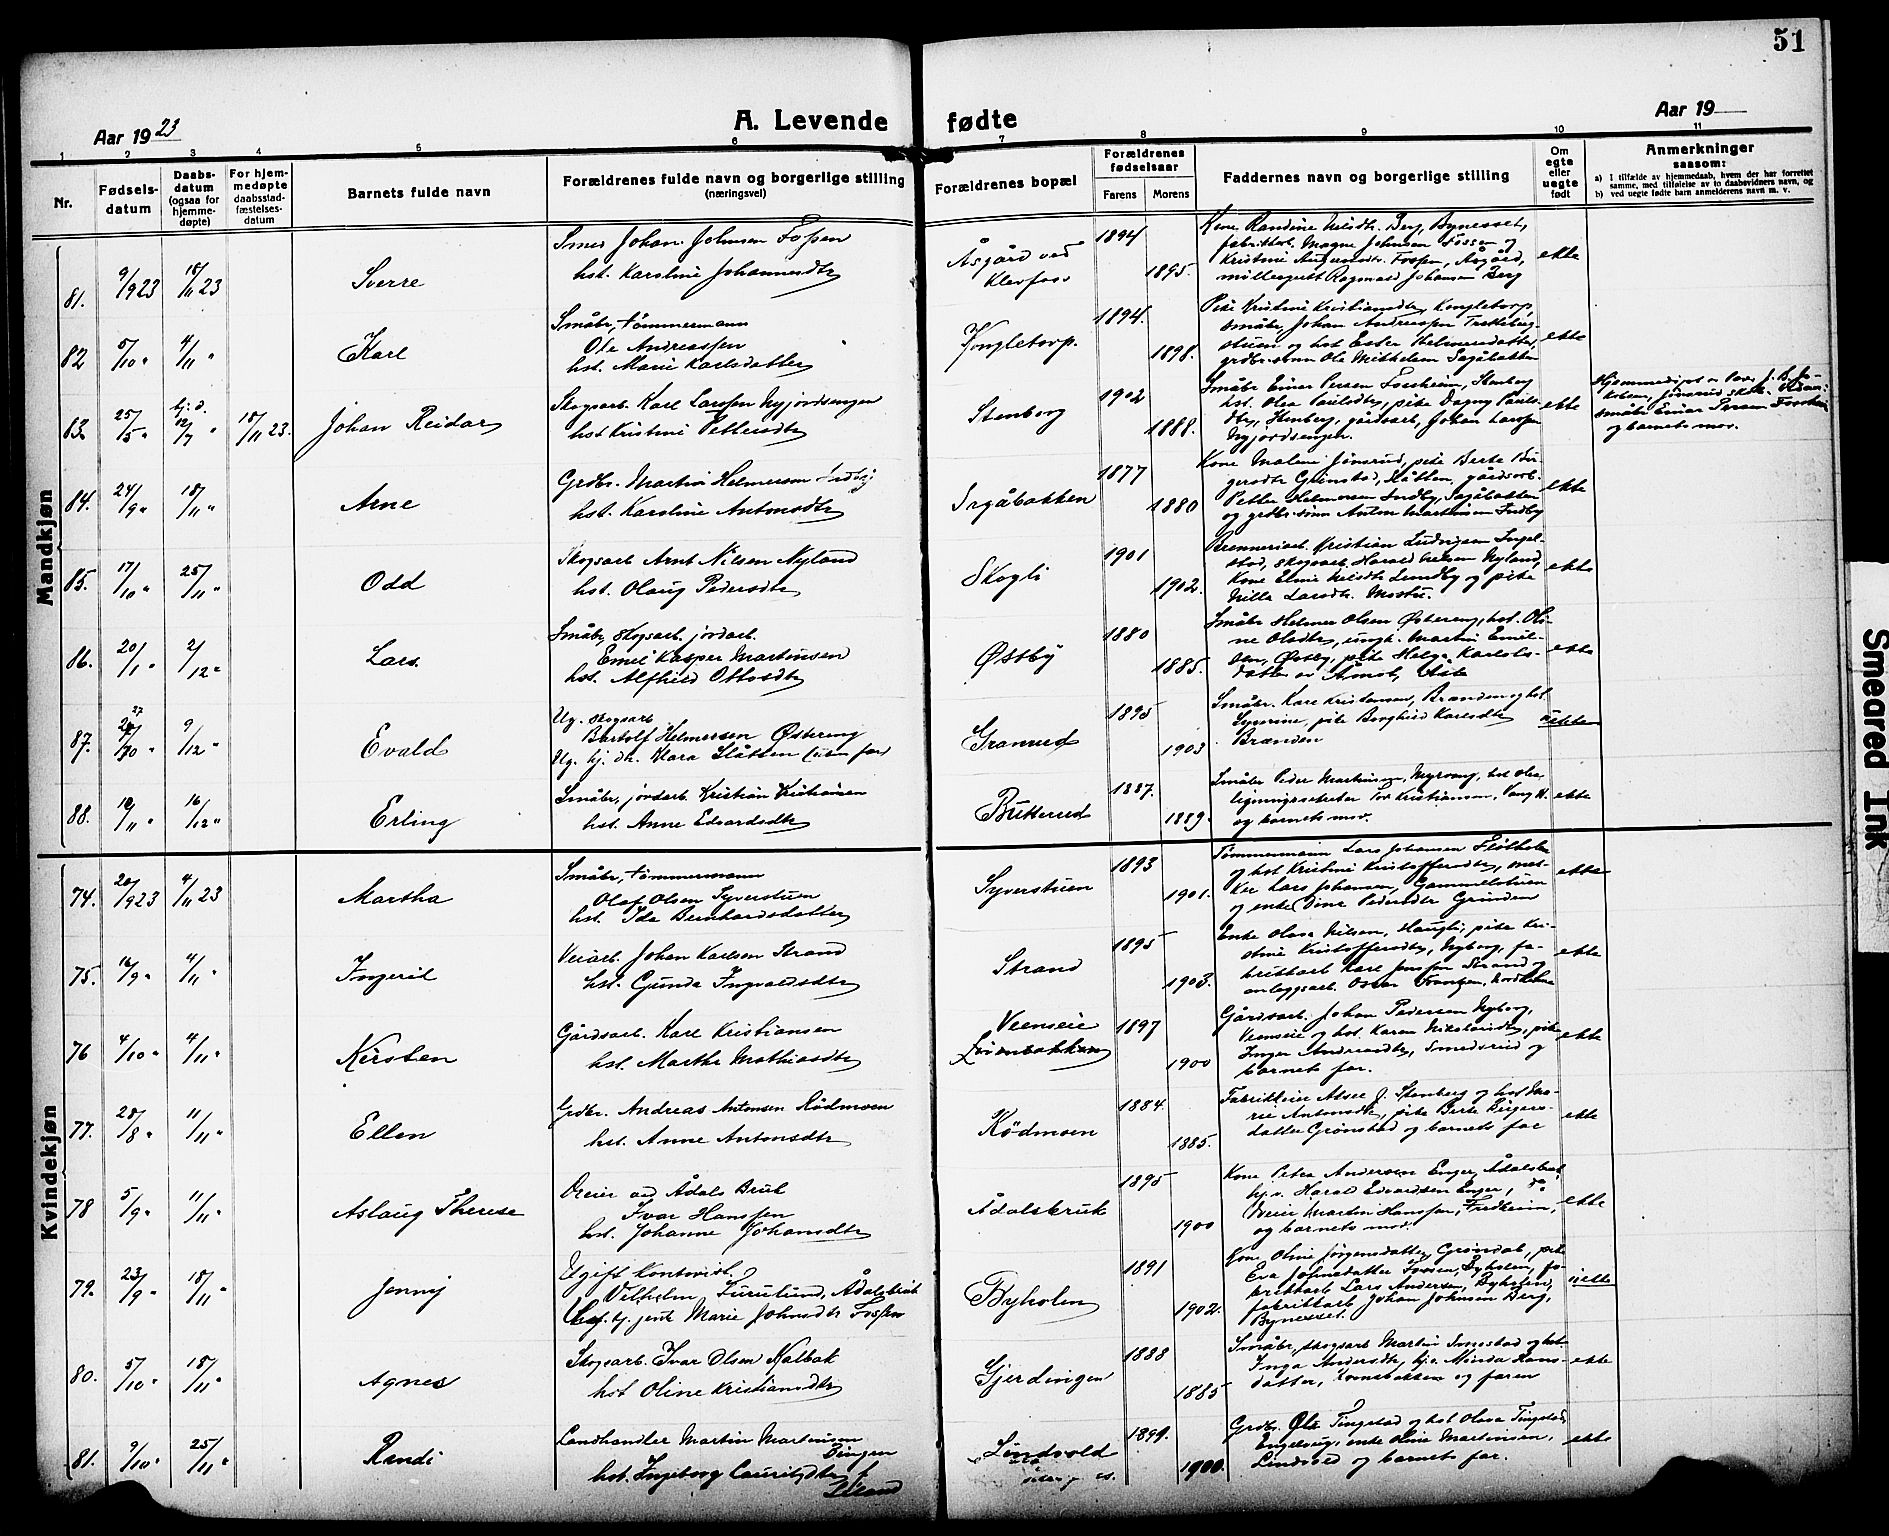 51
Aar 1923
A. Levende fødte
Aar 19
1 2 3 4 5 6 7 8 9 10 11
Nr.
Fødsels-
datum
Daabs-
datum
(ogsaa for
hjemme-
døpte)
For hjem-
medøpte
daabsstad-
fæstelses-
datum
Barnets fulde navn
Forældrenes fulde navn og borgerlige stilling
(næringsvei)
Forældrenes bopæl
Forældrenes
fødselsaar
Farens
Morens
Faddernes navn og borgerlige stilling
Om
egte
eller
uegte
født
Anmerkninger
saasom:
a) I tilfælde av hjemmedaab, hvem der har forrettet
samme, med tilføielse av to daabsvidners navn, og
b) ved uegte fødte barn anmelderens navn m. v.
Mandkjøn
81. 9/9 23 18/11 23 Sverre
Smed Johan Johnsen Fossen
hst. Karoline Johannesdtr
Åsgård ved
Klevfoss
1894
1895.
Kone Randine Nilsdtr. Berg, Bynesset,
fabrikkarb. Magne Johnsen Fossen og
Fossen, Åsgård,
Ragnvald Johansen Berg
ekte
82 5/10 " 4/11 " Karl
Småbr., tømmermann
Ole Andreassen
hst. Marie Karlsdatter
Kongletorp.
1894.
1898.
Pike Kristine Kristiansdtr, Kongletorp,
småbr. Johan Andreassen
og hst Ester Helmersdatter,
grdbr.sønn Ole Sagåbakken
ekte
83. 25/5 " hj. d. 12/7 " 18/11 23. Johan Reidar
Skogsarb. Karl Larssen Nyjordsengen
hst Kristine Pettersdtr
Stenborg
1902
1888.
Småbr Einar Persen Forsheim, Stenberg
hst. Olea Paulsdtr, pike Dagny Pauls-
dtr, Stenberg, gårdsarb, Johan Larssen
Nyjordsengen.
ekte
Hjemmedøpt av
småbr Einar Persen Forsheim
og barnets mor.
84. 24/9 " 18/11 " Arne
Grdbr. Martin Helmersen Indby
hst. Karoline Antonsdtr
Sagåbakken
1877
1880
Kone Malene Jønsrud, pike Berte Bir-
gersdtr Grønstad, Slåtten, gårdsarb.
Petter Helmersen Indby, Sagåbakken
og grdbr.sønn Anton Martinsen Indby
ekte
85. 17/10 " 25/11 " Odd
Skogsarb Arnt Nilsen Nyland
hst. Olaug Pedersdtr
Skogli
1901
1902.
Brenneriarb. Kristian Ludvigsen Ingel-
stad, skogsarb. Harald Nilsen Nyland,
Kone Eline Nilsdtr Lundby og pike
Nilla Larsdtr. Mostu.
ekte
86. 20/1 " 2/12 " Lars.
Småbr, skogsarb. jordarb.
Emil Kasper Martinsen
hst. Alfhild Ottosdtr
Østby
1880
1885.
Småbr Helmer Olsen Østereng, hst. Oli-
ne Olsdtr, ungk. Martin Emil-
sen, Østby, pike Helga Karlols-
datter av Åmot,
ekte
87. 27/10 " 9/12 " Evald
Ug. skogsarb
Bertolf Helmersen Østereng
Ug. hj. dtr. Klara Slåtten (uten far)
Granerud
1895
1903
Småbr. Kare Kristiansen, Brænden og hst
Syverine, pike Borghild Karlsdtr
Brænden
uekte
88. 10/11 " 16/12 " Erling
Småbr, jordarb Kristian Kristiansen
hst. Anne Edvardsdtr
Butterud
1887.
1889.
Småbr Peder Martinsen, Myrvang, hst Olea
ligningssekretær Tor Kristiansen, Vang H.
og barnets mor.
ekte
Kvindekjøn
74. 20/9 23 4/11 23 Martha
Småbr, tømmermann
Olaf Olsen Syverstuen
hst. Ida Bernhardsdatter
Syverstuen
1893
1901.
Tømmermann Lars Johansen
og hst Kristine Kristoffersdtr,
Lars Johansen, Gammelstuen
og enke Dina Pedersdtr Grunden
ekte
75. 16/9 " 4/11 " Ingerid
Veiarb. Johan Karlsen Strand
hst. Gunda Ingvaldsdtr
Strand
1895
1903.
Enke Olava Nilsen, Haugli, pike Kri-
stine Kristoffersdtr, Nyborg, fa-
brikkarb Karl Jensen Strand og
anleggsarb. Oscar Frantzen,
ekte
76 4/10 " 4/11 " Kirsten
Gårdsarb. Karl Kristiansen
hst. Marthe Mathiasdtr
Veenseie
Løvenbakken
1897
1900
Gårdsarb. Johan Pedersen Nyborg,
Veenseie og hst. Karen pike
Inger Andreasdtr, Smedsrud og
barnets far.
ekte
77. 28/8 " 11/11 " Ellen
Grdbr. Andreas Antonsen Rødmoen
hst. Anne Antonsdtr
Rødmoen
1884.
1885.
Fabrikkeier J. Stenberg og hst Ma-
rie Antonsdtr, pike Berte Birgers-
datter Grønstad og barnets far
ekte
78 5/9 " 11/11 " Aslaug Therese
Dreier ved Ådals Bruk
Ivar Hanssen
hst. Johanne Johansdtr
Ådalsbruk
1895
1900
Kone Petra Andersen Enger, Ådalsbruk,
Harald Edvardsen Enger, do
Dreier Martin Hanssen, Fredheim,
og barnets mor.
ekte
79. 23/9 " 18/11 " Jenny
Ugift Kontorist
Vilhelm Furulund, Ådalsbruk
Ug. hj. jente Marie Johnsdtr Fossen
Byholen
1891
1902.
Kone Oline Jørgensdatter, Grøndal, pike
Eva Johnsdatter Fossen, Byholen, fa-
brikkarb Lars Andersen, Byholen,
fabrikkarb. Johan Johnsen Berg,
Bynesset.
uekte
80. 5/10 " 18/11 " Agnes
Skogsarb. Ivar Olsen Kalbak
hst Oline Kristiansdtr
Gjerdingen
1888
1885
Småbr, skogsarb Martin Smestad og hst
Inga Andersdtr, Minda Hans-
datter, og faren
ekte
81. 9/10 " 25/11 " Randi
Landhandler Martin Martinsen
Bingen
hst. Ingeborg Lauritzdtr f.
Lindvold
1899.
1900.
Grdbr. Ole Tingstad og hst Olava Tingstad,
Engelsvig, enke Oline Martinsen,
Lindvold og barnets far.
ekte
Smeared Ink